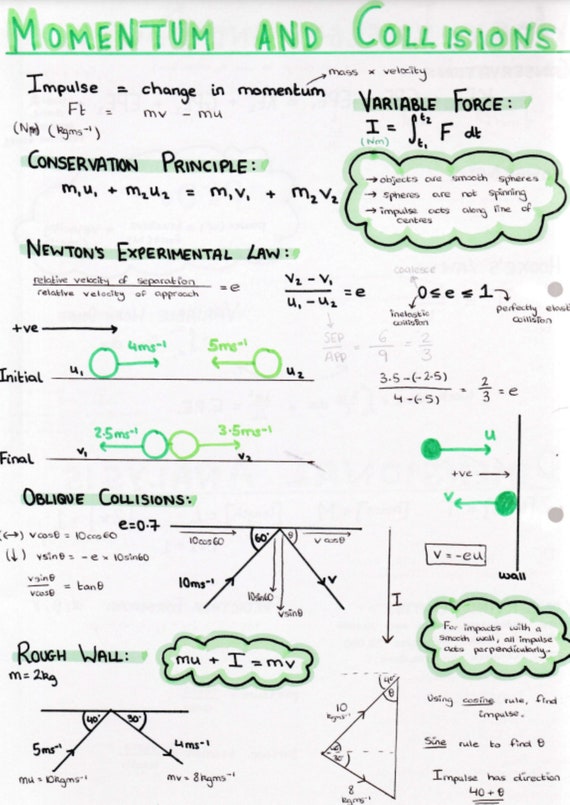 MOMENTUM AND COLLISIONS
Impulse = change in momentum → mass × velocity
Ft = mv - mu
(Nm) (kgms⁻¹)
VARIABLE FORCE:
I = ∫ₜ₁ᵗ² F dt
(Nm)
→ objects are smooth spheres
→ spheres are not spinning
→ impulse acts along line of
centres
CONSERVATION PRINCIPLE:
m₁u₁ + m₂u₂ = m₁v₁ + m₂v₂
NEWTON'S EXPERIMENTAL LAW:
relative velocity of separation
relative velocity of approach
= e
v₂ - v₁
u₁ - u₂
= e
coalesce
0 ≤ e ≤ 1
inelastic
collision
perfectly elastic
collision
SEP
APP
= 6/9 = 2/3
3.5 - (-2.5)
4 - (-5)
= 2/3 = e
+ve
4ms⁻¹
5ms⁻¹
Initial
u₁
u₂
2.5ms⁻¹
3.5ms⁻¹
Final
v₁
v₂
u
+ve
v
v = -eu
wall
OBLIQUE COLLISIONS:
e=0.7
(↔) vcosθ = 10cos60
(↓) vsinθ = -e × 10sin60
vsinθ
vcosθ
= tanθ
10cos60
60°
θ
v cosθ
10ms⁻¹
10sin60
v
vsinθ
I
For impacts with a
smooth wall, all impulse
acts perpendicularly.
ROUGH WALL:
m = 2kg
mu + I = mv
40°
30°
5ms⁻¹
4ms⁻¹
mu = 10kgms⁻¹
mv = 8kgms⁻¹
40°
θ
10
kgms⁻¹
30°
8
kgms⁻¹
Using cosine rule, find
impulse.
Sine rule to find θ
Impulse has direction
40 + θ